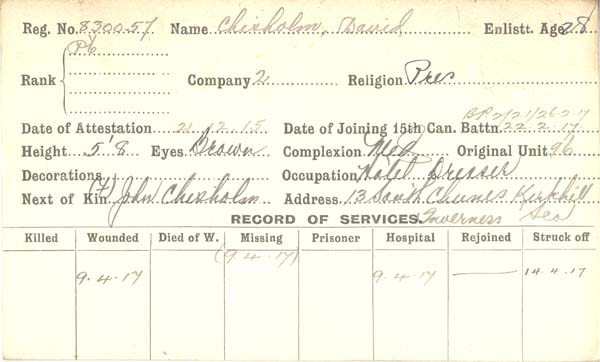 Reg. No. 830057 Name Chisholm, David Enlistt. Age 28
Pte
Rank Company 2 Religion Pres
B.P. 2/21/26-2-17
Date of Attestation 21.12.15 Date of Joining 15th Can. Battn. 22 2 17
Height 5'8 Eyes Brown Complexion Med Original Unit 96
Decorations Occupation Dresser
Next of Kin (F) John Chisholm Address 13 South Clunes Kirkhill
RECORD OF SERVICES Inverness Sco
Killed Wounded Died of W. Missing Prisoner Hospital Rejoined Struck off
(9.4.17)
9.4.17 9.4.17 14.4.17